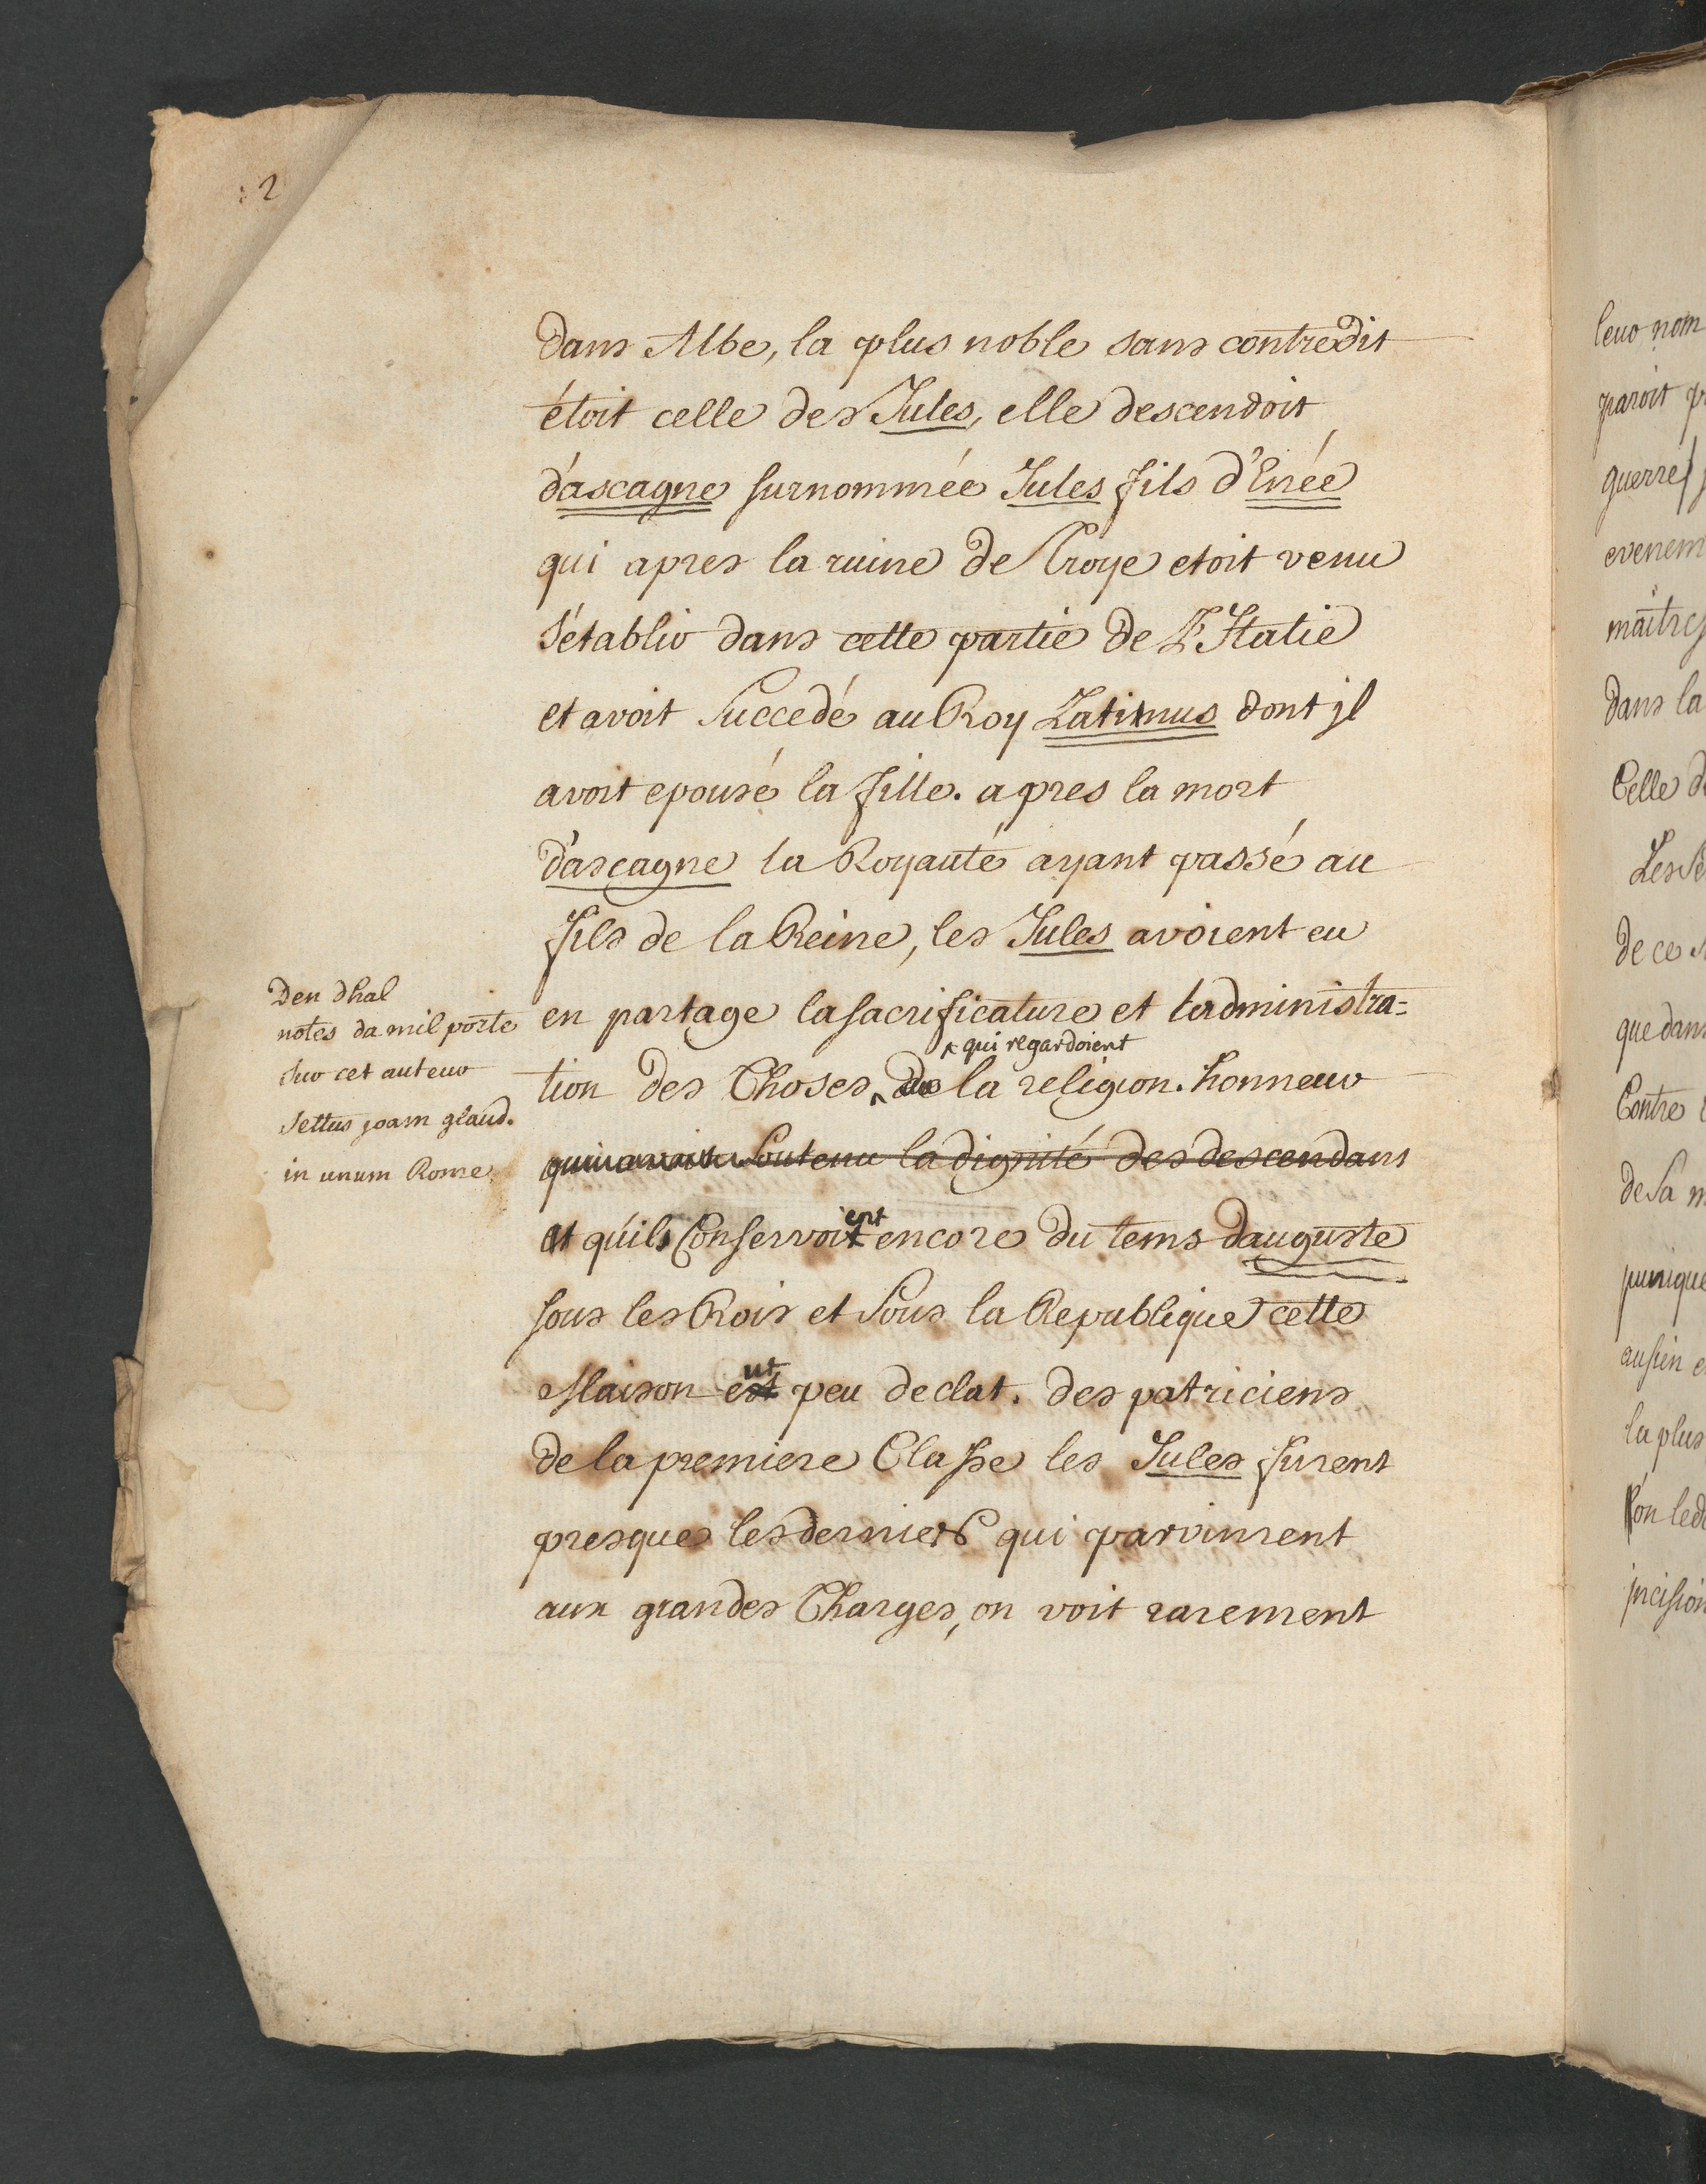 2
dans Albe, la plus noble sans contredit
étoit celle des Jules, elle descendoit
d'ascagne surnommée Jules fils d'Enée
qui apres la ruine de Troye etoit venu
s'établir dans cette partie de L'Italie
et avoit succedé au Roy Latinus dont jl
avoit epousé la fille. apres la mort
d'ascagne la Royauté ayant passé au
fils de la Reine, les Jules avoient eu
en partage la sacrificature et l'administra=
qui regardoient
tion des Choses la religion. honneur
soutenu la dignité des descendans
et qu'ils Conservoient encore du tems dauguste
sous les Rois et sous la Republique cette
Maison eut peu declat. des patriciens
de la premiere Classe les Jules furent
presques les derniers qui parvinrent
aux grandes Charges, on voit rarement
Den dhal
notes da mil porte
sur cet auteur
settus joam glaud.
in unum Rome
leur nom
paroit
guerre
evenem
maitres
dans la
Celle
de ce
que dans
Contre
de sa
punique
la plus